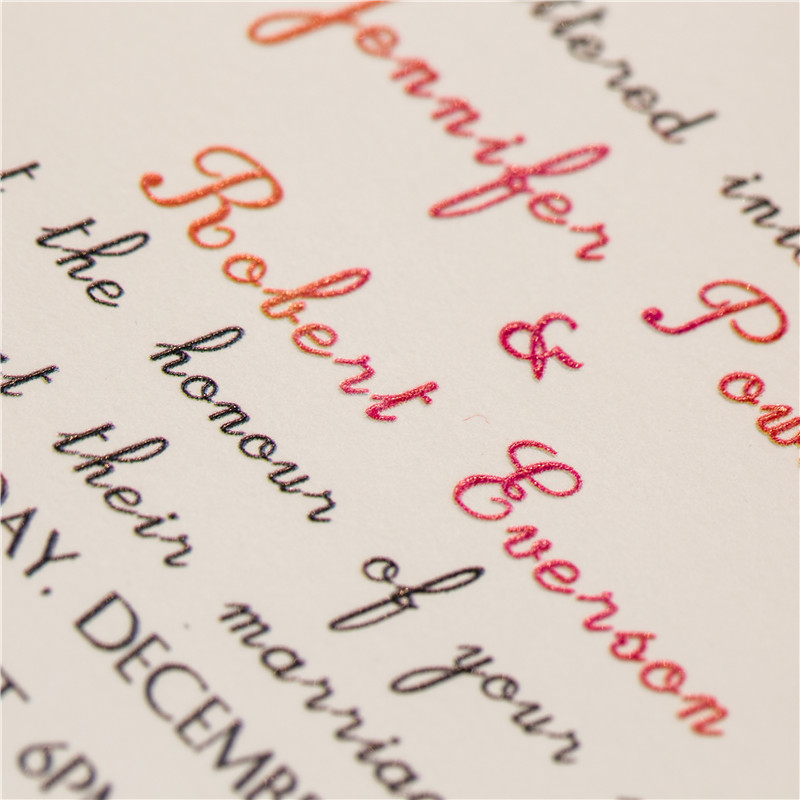 ttered int
Jennifer Pow
&
Robert Everson
t the honour of your
t their marriag
DAY, DECEMB
T 6PM